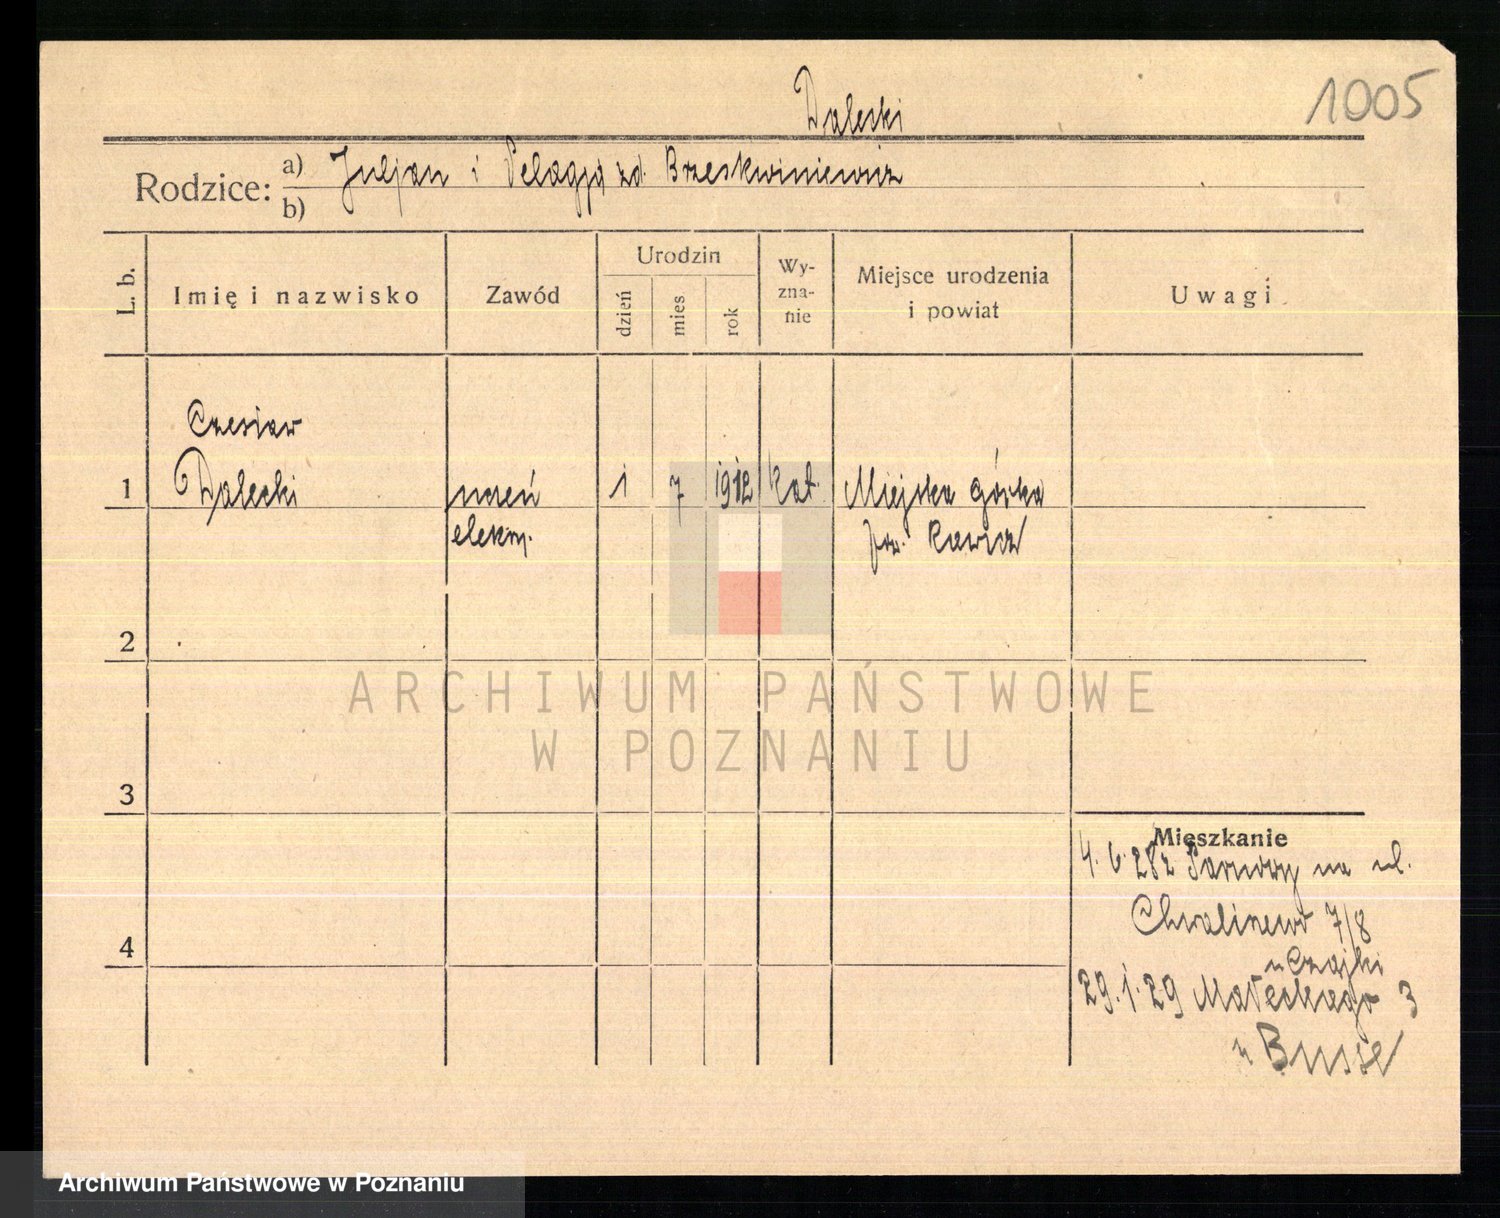 1005
Dalecki
Rodzice: a) Juljan i Pelagja zd. Brzeskwiniewicz
b)
L. b.
Imię i nazwisko
Zawód
Urodzin
dzień
mies
rok
Wy-
zna-
nie
Miejsce urodzenia
i powiat
Uwagi
Czesław
1 Dalecki uczeń 1 7 1912 kat. Miejska Górka
elektr. pow. Rawicz
2
3
4
Mieszkanie
4.6.28 z na ul.
Chwaliszewo 7/8
u Czajki
29.1.29 Małeckiego 3
u Busse
ARCHIWUM PAŃSTWOWE
W POZNANIU
Archiwum Państwowe w Poznaniu